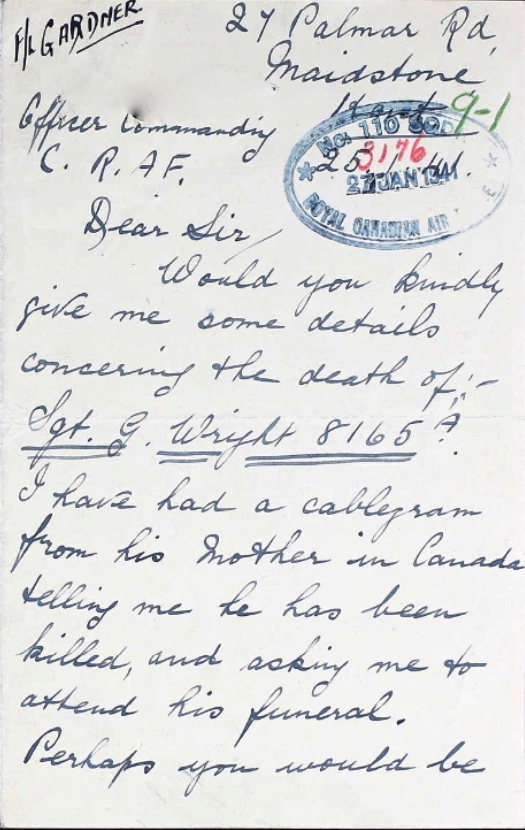 F/L GARDNER
27 Palmar Rd,
Maidstone
Kent
9-1
Officer Commanding
C. R. A F.
No. 110 SQD
3176
25
41.
27 JAN 1941
ROYAL CANADIAN AIR
Dear Sir,
Would you kindly
give me some details
concering the death of;-
Sgt. G. Wright 8165A?
I have had a cablegram
from his Mother in Canada
telling me he has been
killed, and asking me to
attend his funeral.
Perhaps you would be